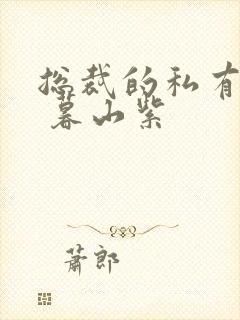 总裁的私有
暮山紫
萧郎